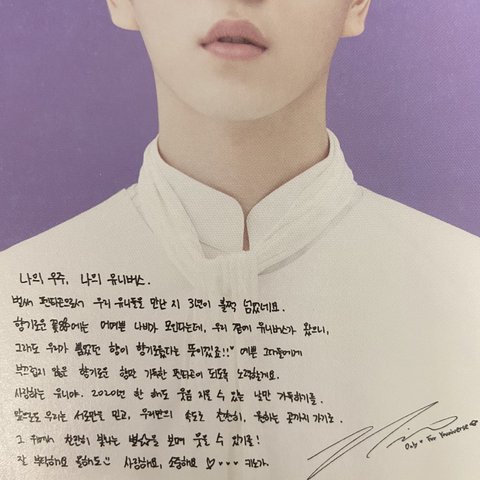 나의 우주, 나의 유니버스.
벌써 펜타곤으로서 우리 유니들을 만난 지 3년이 훌쩍 넘었네요.
향기로운 꽃에는 어여쁜 나비가 모인다는데, 우리 곁에 유니버스가 왔으니,
그래도 우리가 품었던 향이 향기로웠다는 뜻이겠죠!!" 예쁜 그대들에게
부끄럽지 않은 향기로운 향만 가득한 펜타곤이 되도록 노력할게요.
사랑하는 유니야. 2020년 한 해도 웃음 지을 수 있는 날만 가득하기를.
앞으로도 우리는 서로만을 믿고, 우리만의 속도로 천천히, 원하는 곳까지 가기로.
그 위에서 찬란히 빛나는 별☆을 보며 웃을 수 있기를!
잘 부탁해요 올해도 사랑해요, 소중해요 ♡··· 키노가.
Only For Yuniverse